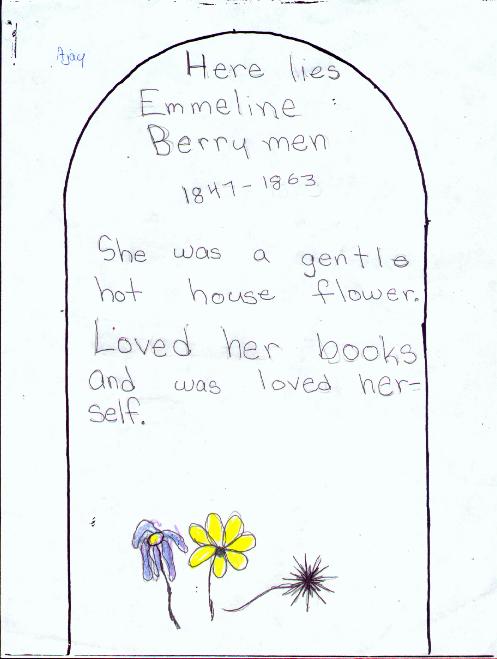 Ajay
Here lies
Emmeline
Berry men
1847-1863
She was a gentle
hot house flower.
Loved her books
and was loved her-
self.